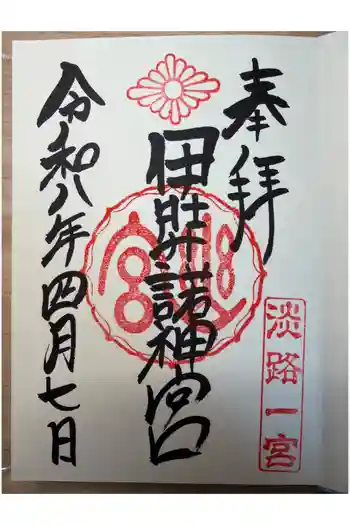 奉拝
淡路一宮
伊弉諾神宮
令和八年四月七日